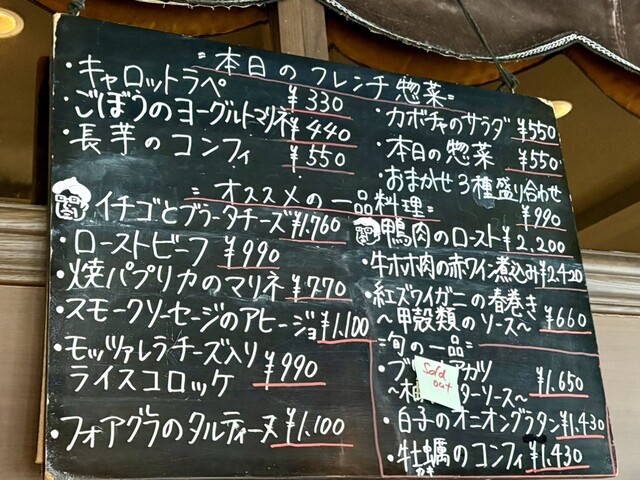 =本日のフレンチ惣菜=
・キャロットラペ ¥330
・ごぼうのヨーグルトマリネ ¥440
・長芋のコンフィ ¥550
・カボチャのサラダ ¥550
・本日の惣菜 ¥550
・おまかせ3種盛り合わせ ¥990
=オススメの一品料理=
イチゴとブラータチーズ ¥1,760
・ローストビーフ ¥990
・焼パプリカのマリネ ¥770
・スモークソーセージのアヒージョ ¥1,100
・モッツァレラチーズ入り
ライスコロッケ ¥990
・フォアグラのタルティーヌ ¥1,100
鴨肉のロースト ¥2,200
・牛ホホ肉の赤ワイン煮込み ¥2,420
・紅ズワイガニの春巻き
~甲殻類のソース~ ¥660
=旬の一品=
・ブ カツ ¥1,650
~柚 ターソース~
Sold
out
・白子のオニオングラタン ¥1,430
・牡蠣のコンフィ ¥1,430
カキ